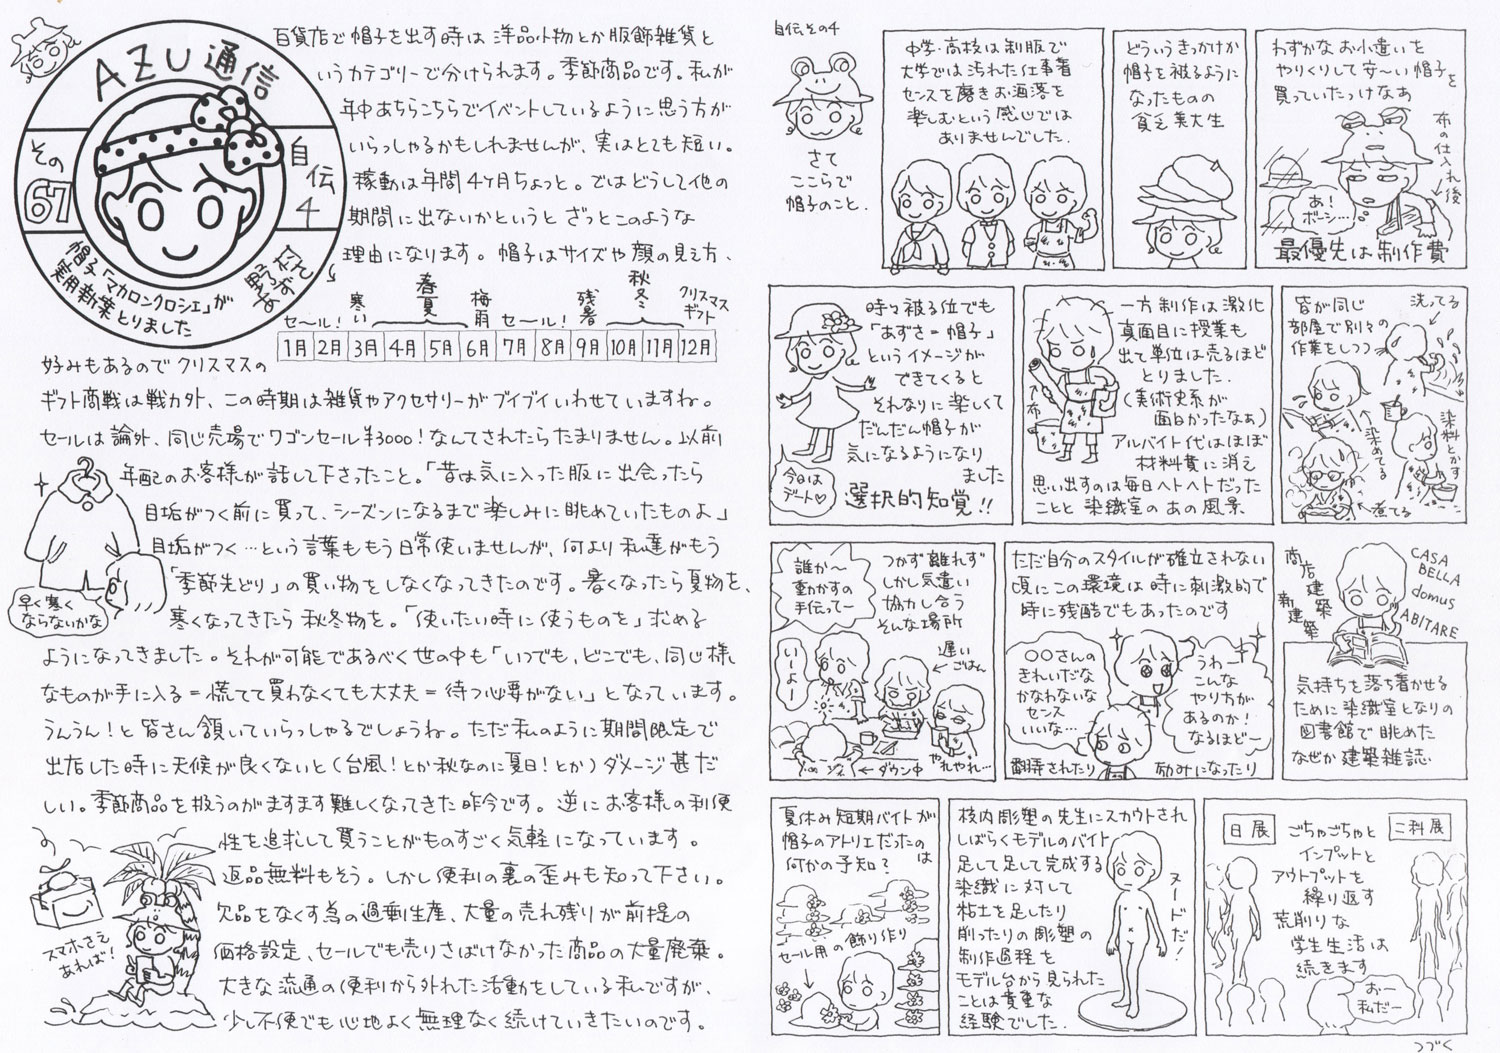 AZU通信
その
67
自伝
4
帽子「マカロンクロシェ」が
実用新案とりました
百貨店で帽子を出す時は洋品小物とか服飾雑貨と
いうカテゴリーで分けられます。季節商品です。私が
年中あちらこちらでイベントしているように思う方が
いらっしゃるかもしれませんが、実はとても短い。
稼動は年間4ヶ月ちょっと。ではどうして他の
期間に出ないかというとざっとこのような
理由になります。帽子はサイズや顔の見え方、
セール!
寒い
春夏
梅雨
セール!
残暑
秋冬
クリスマス
ギフト
1月 2月 3月 4月 5月 6月 7月 8月 9月 10月 11月 12月
好みもあるのでクリスマスの
ギフト商戦は戦力外、この時期は雑貨やアクセサリーがブイブイいわせていますね。
セールは論外、同じ売場でワゴンセール¥3000!なんてされたらたまりません。以前
年配のお客様が話して下さったこと。「昔は気に入った服に出会ったら
目垢がつく前に買って、シーズンになるまで楽しみに眺めていたものよ」
目垢がつく…という言葉ももう日常使いませんが、何より私達がもう
「季節先どり」の買い物をしなくなってきたのです。暑くなったら夏物を、
寒くなってきたら秋冬物を。「使いたい時に使うものを」求める
早く寒く
ならないかな
ようになってきました。それが可能であるべく世の中も「いつでも、どこでも、同じ様
なものが手に入る=慌てて買わなくても大丈夫=待つ必要がない」となっています。
うんうん!と皆さん頷いていらっしゃるでしょうね。ただ私のように期間限定で
出店した時に天候が良くないと(台風!とか秋なのに夏日!とか)ダメージ甚だ
しい。季節商品を扱うのがますます難しくなってきた昨今です。逆にお客様の利便
性を追求して買うことがものすごく気軽になっています。
返品無料もそう。しかし便利の裏の歪みも知って下さい。
欠品をなくす為の過剰生産、大量の売れ残りが前提の
価格設定、セールでも売りさばけなかった商品の大量廃棄。
大きな流通の便利から外れた活動をしている私ですが、
少し不便でも心地よく無理なく続けていきたいのです。
スマホさえ
あれば!
自伝その4
さて
ここらで
帽子のこと.
中学・高校は制服で
大学では汚れた仕事着
センスを磨きお洒落を
楽しむという感心では
ありませんでした.
どういうきっかけか
帽子を被るように
なったものの
貧乏美大生
わずかなお小遣いを
やりくりして安〜い帽子を
買っていたっけなあ
布の仕入れ後
あ!
ボーシ…
最優先は制作費
時々被る位でも
「あずさ=帽子」
というイメージが
できてくると
それなりに楽しくて
だんだん帽子が
気になるようになり
ました
今日は
デート♡
選択的知覚!!
一方制作は激化
真面目に授業も
出て単位は売るほど
とりました.
(美術史系が
面白かったなぁ)
アルバイト代はほぼ
材料費に消え
思い出すのは毎日ヘトヘトだった
ことと染織室のあの風景
布
皆が同じ
部屋で別々の
作業をしつつ
洗ってる
染料とかす
染めてる
煮てる
誰か〜
動かすの
手伝って〜
いーよー
つかず離れず
しかし気遣い
協力し合う
そんな場所
遅い
ごはん
ダウン中
やれやれ…
ただ自分のスタイルが確立されない
頃にこの環境は時に刺激的で
時に残酷でもあったのです
○○さんの
きれいだな
かなわないな
センス
いいな…
うわー
こんな
やり方が
あるのか!
なるほど〜
翻弄されたり
励みになったり
商店建築
新建築
CASA
BELLA
domus
ABITARE
気持ちを落ち着かせる
ために染織室となりの
図書館で眺めた
なぜか建築雑誌
夏休み短期バイトが
帽子のアトリエだったのは
何かの予知?
セール用の飾り作り
校内彫塑の先生にスカウトされ
しばらくモデルのバイト
足して足して完成する
染織に対して
粘土を足したり
削ったりの彫塑の
制作過程を
モデル台から見られた
ことは貴重な
経験でした.
ヌードだ!
日展
二科展
ごちゃごちゃと
インプットと
アウトプットを
繰り返す
荒削りな
学生生活は
続きます
おー
私だー
つづく